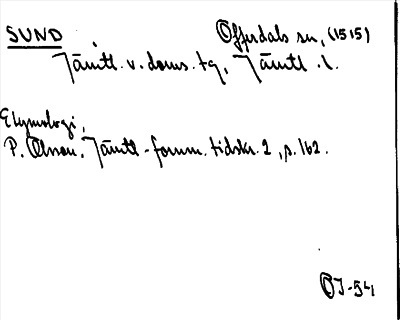 SUND Offerdals sn, (1515)
Jämtl. v. doms. tg, Jämtl. l.
Etymologi,
P. Olsson, Jämtl-fornm. tidskr. 2, s. 162.
OJ-54